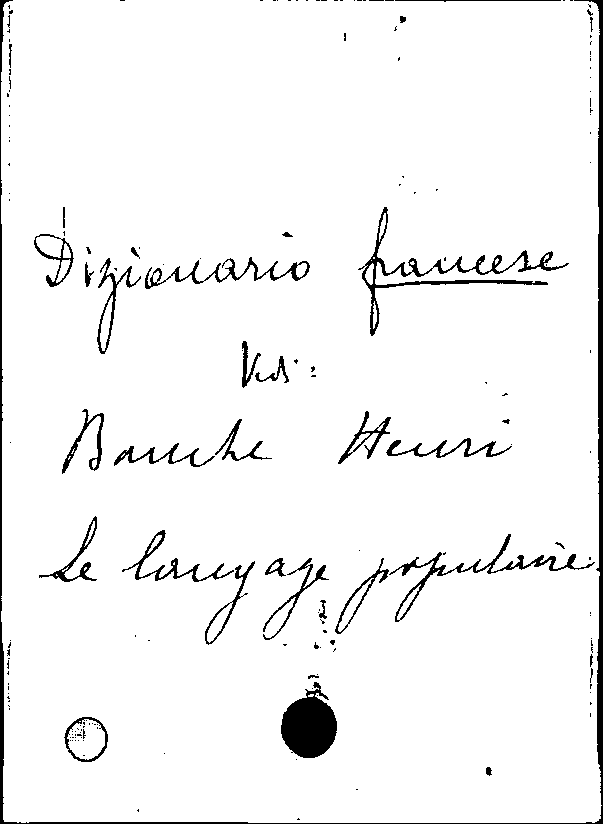 Dizionario francese
Vedi:
Bauche Henri
Le langage populaire.